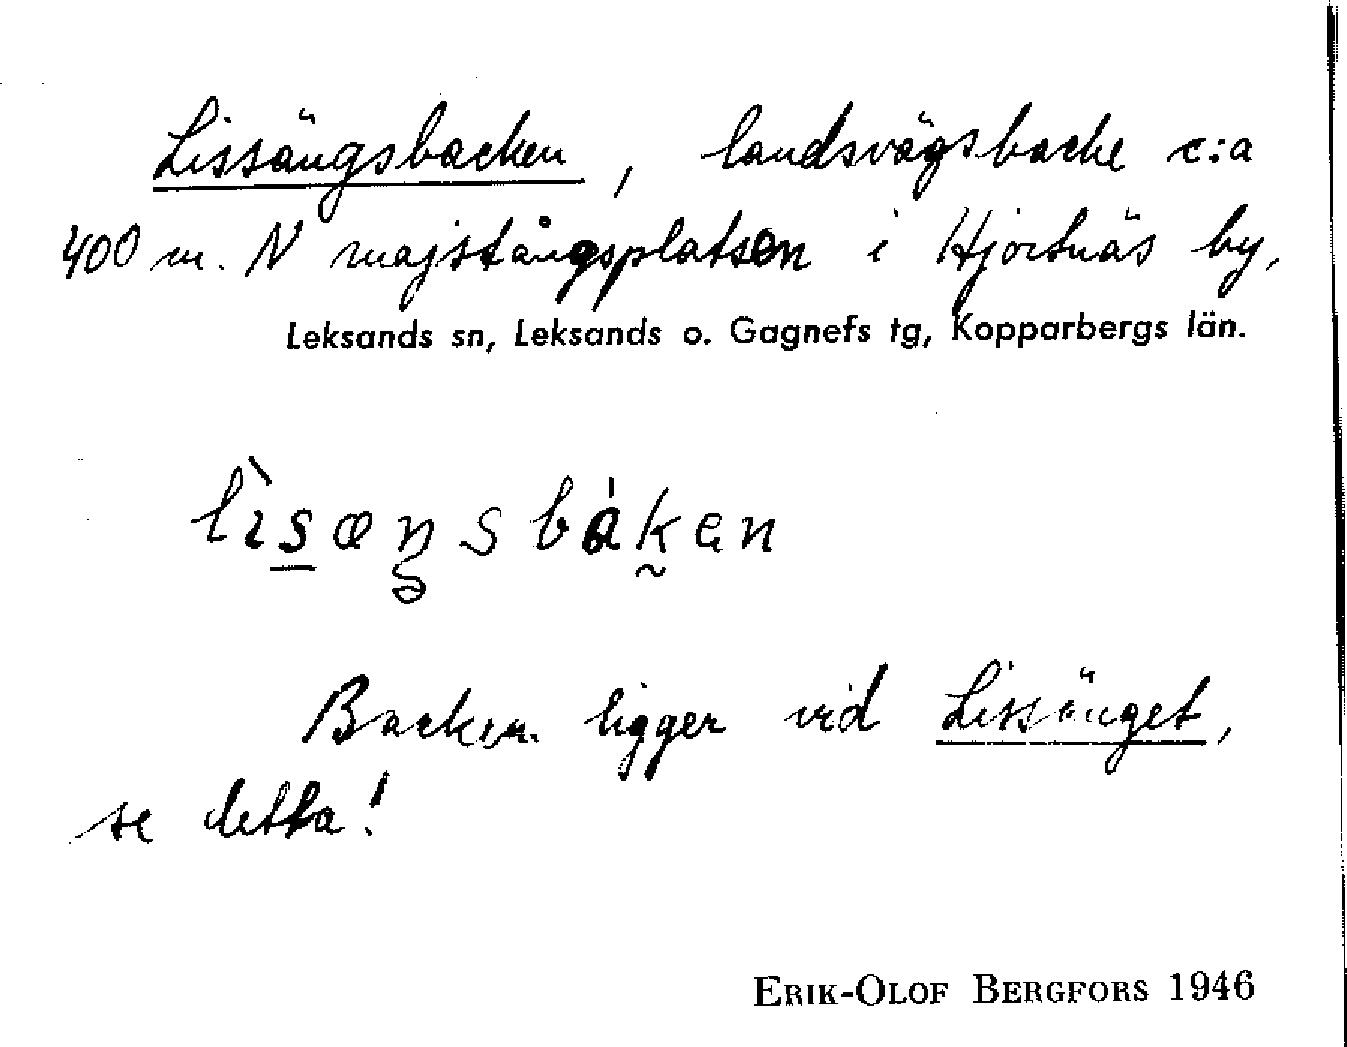 Lissängsbacken, landsvägsbacke c:a
400 m. N majstångsplatsen i Hjortnäs by,
Leksands sn, Leksands o. Gagnefs tg, Kopparbergs län.
lìsæŋsbáken
Backen ligger vid Lissänget,
se detta!
ERIK-OLOF BERGFORS 1946